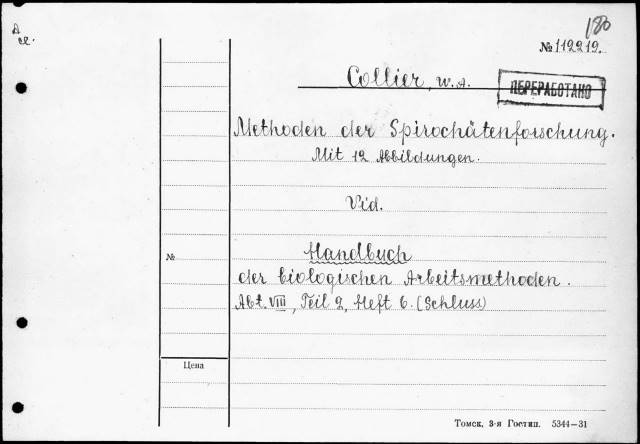 180
№ 112219.
Collier, W. A.
ПЕРЕРАБОТАНО
Methoden der Spirochätenforschung.
Mit 12 Abbildungen.
Vid.
№
Handbuch
der biologischen Arbeitsmethoden.
Abt. VIII, Teil 2, Heft 6. (Schluss)
Цена
Томск, 3-я Гостип. 5344—31